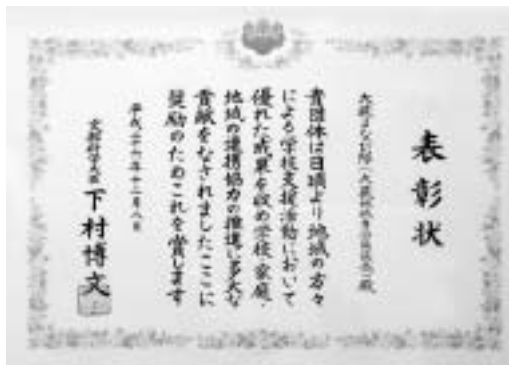 表彰状
殿
貴団体は日頃より地域の方々
による学校支援活動において
優れた成果を収め学校・家庭・
地域の連携協力の推進に多大な
貢献をなされましたここに
奨励のためこれを賞します
平成二十六年十二月八日
文部科学大臣 下村博文